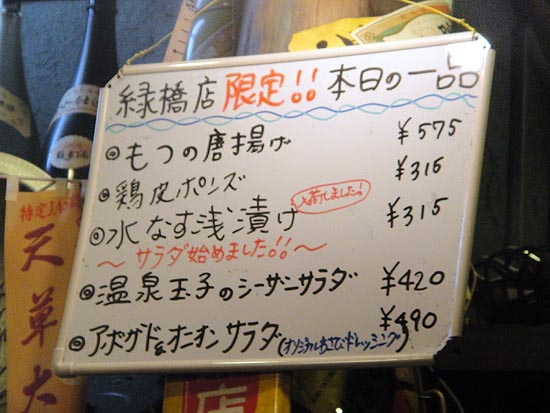 緑橋店限定!! 本日の一品
◎もつの唐揚げ ¥575
◎鶏皮ポンズ ¥315
入荷しました!
◎水なす浅漬け ¥315
〜サラダ始めました!!〜
◎温泉玉子のシーザーサラダ ¥420
◎アボガド&オニオンサラダ(オリジナルわさびドレッシング) ¥490
特定JAS
天草大
店